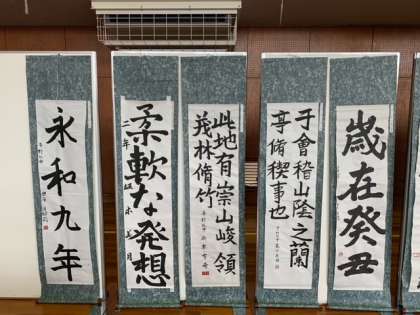 歳在癸丑
于會稽山陰之蘭
亭脩稧事也
此地有崇山峻領
茂林脩竹
柔軟な発想
永和九年